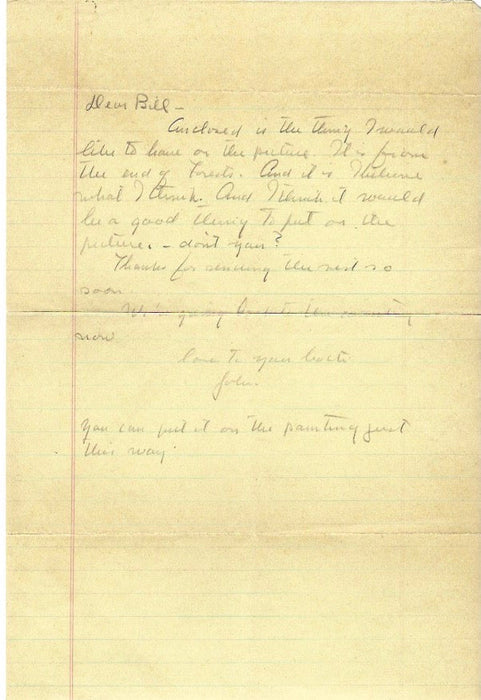 Dear Bill -
Enclosed is the thing I would
like to have on the picture. It is from
the end of Forests. And it is I believe
what I think. And I think it would
be a good thing to put on the
picture. - don't you?
Thanks for sending the rest so
soon.
We're going back to the country
now
love to you both
John.
You can put it on the painting just
this way.